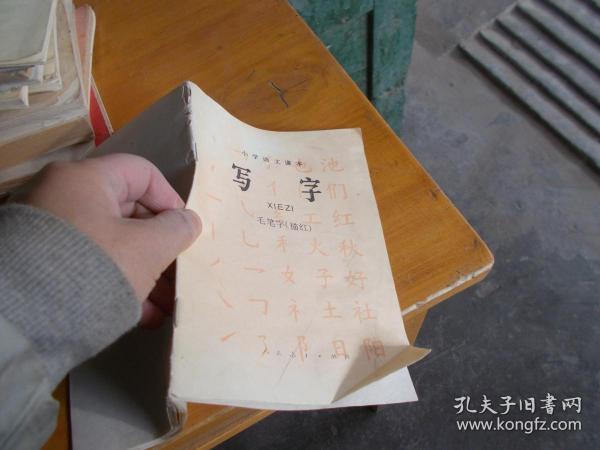 小学语文课本
写字
XIEZI
毛笔字(描红)
也 池
亻 们
工 红
禾 火 秋
女 子 好
礻 土 社
阝 日 阳
孔夫子旧书网
www.kongfz.com